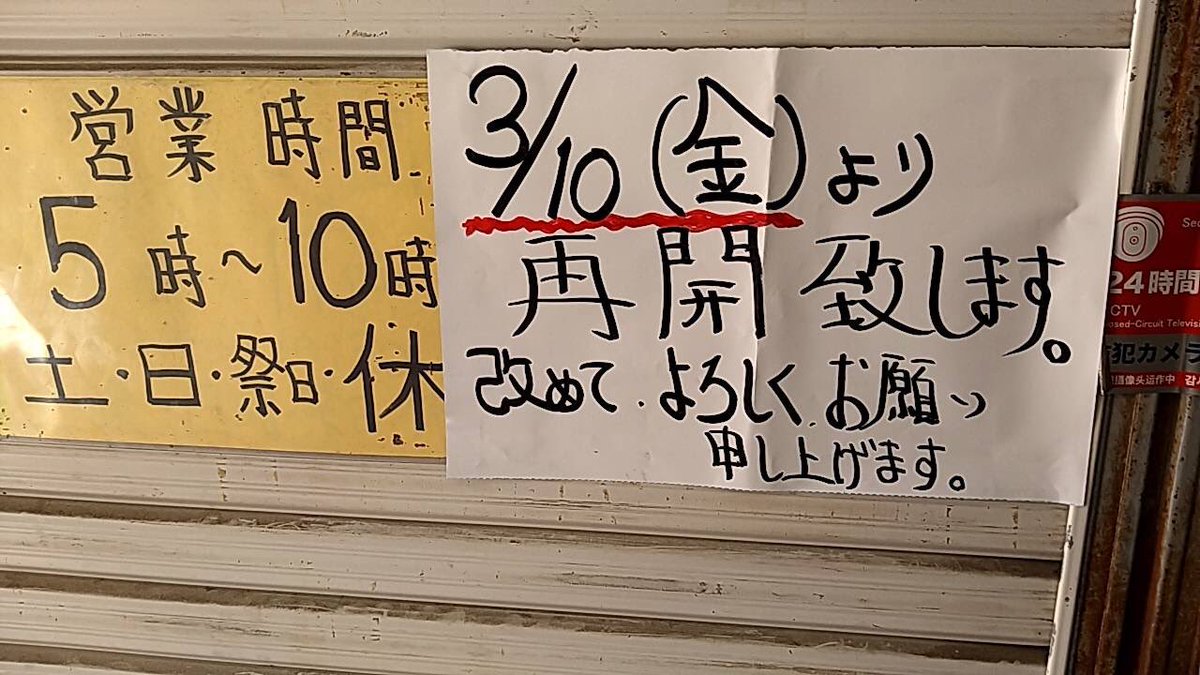 営業時間
5時~10時
土・日・祭日・休
3/10(金)より
再開致します。
改めてよろしくお願い
申し上げます。
24時間
犯カメラ